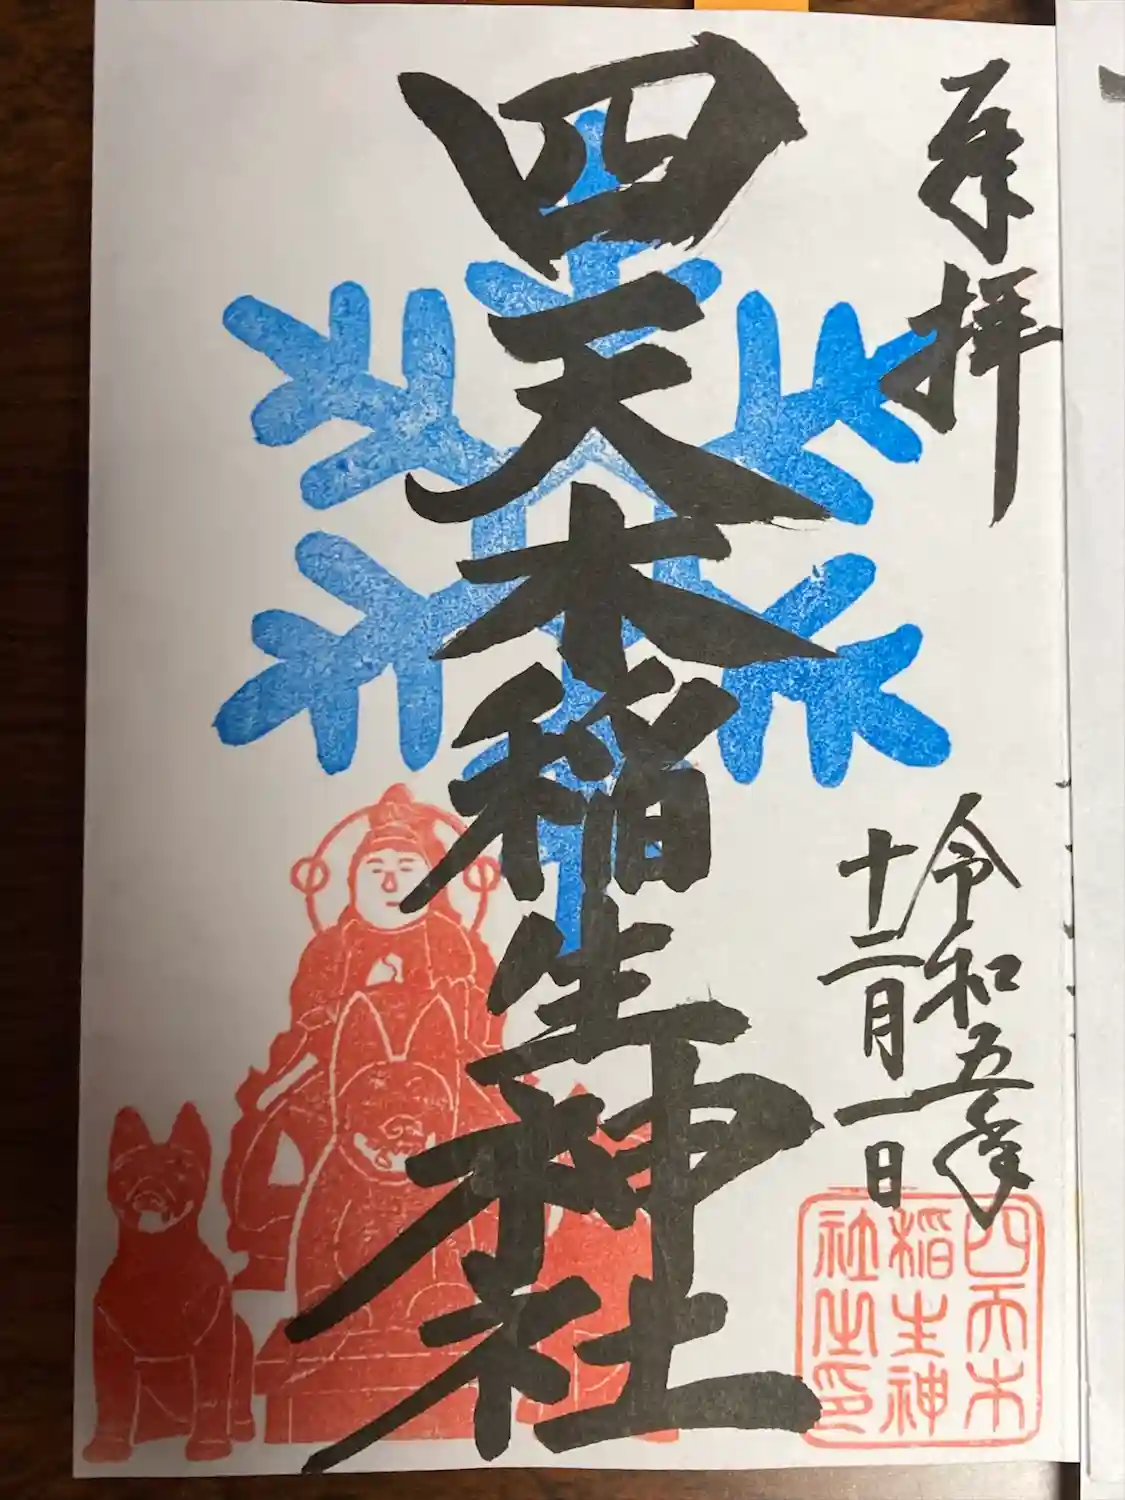 奉拝
令和五年
十二月一日
四天木稲生神社
四天木
稲生神
社之印